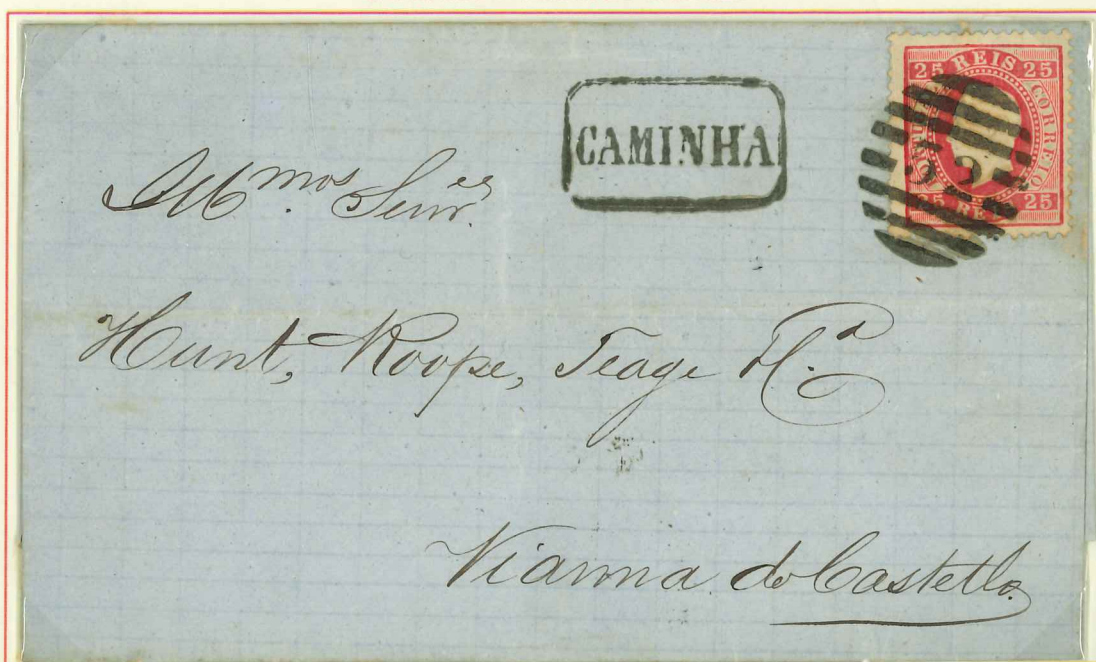 CAMINHA
25 REIS 25
CORREIO
52
25 REIS 25
Illmos. Senres
Hunt, Roope, Teage & Ca
Vianna do Castello.